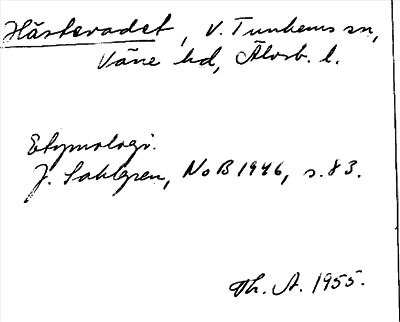 Hästevadet, V. Tunhems sn,
Väne hd, Älvsb. l.
Etymologi.
J. Sahlgren, NoB 1946, s. 83.
Th. A. 1955.